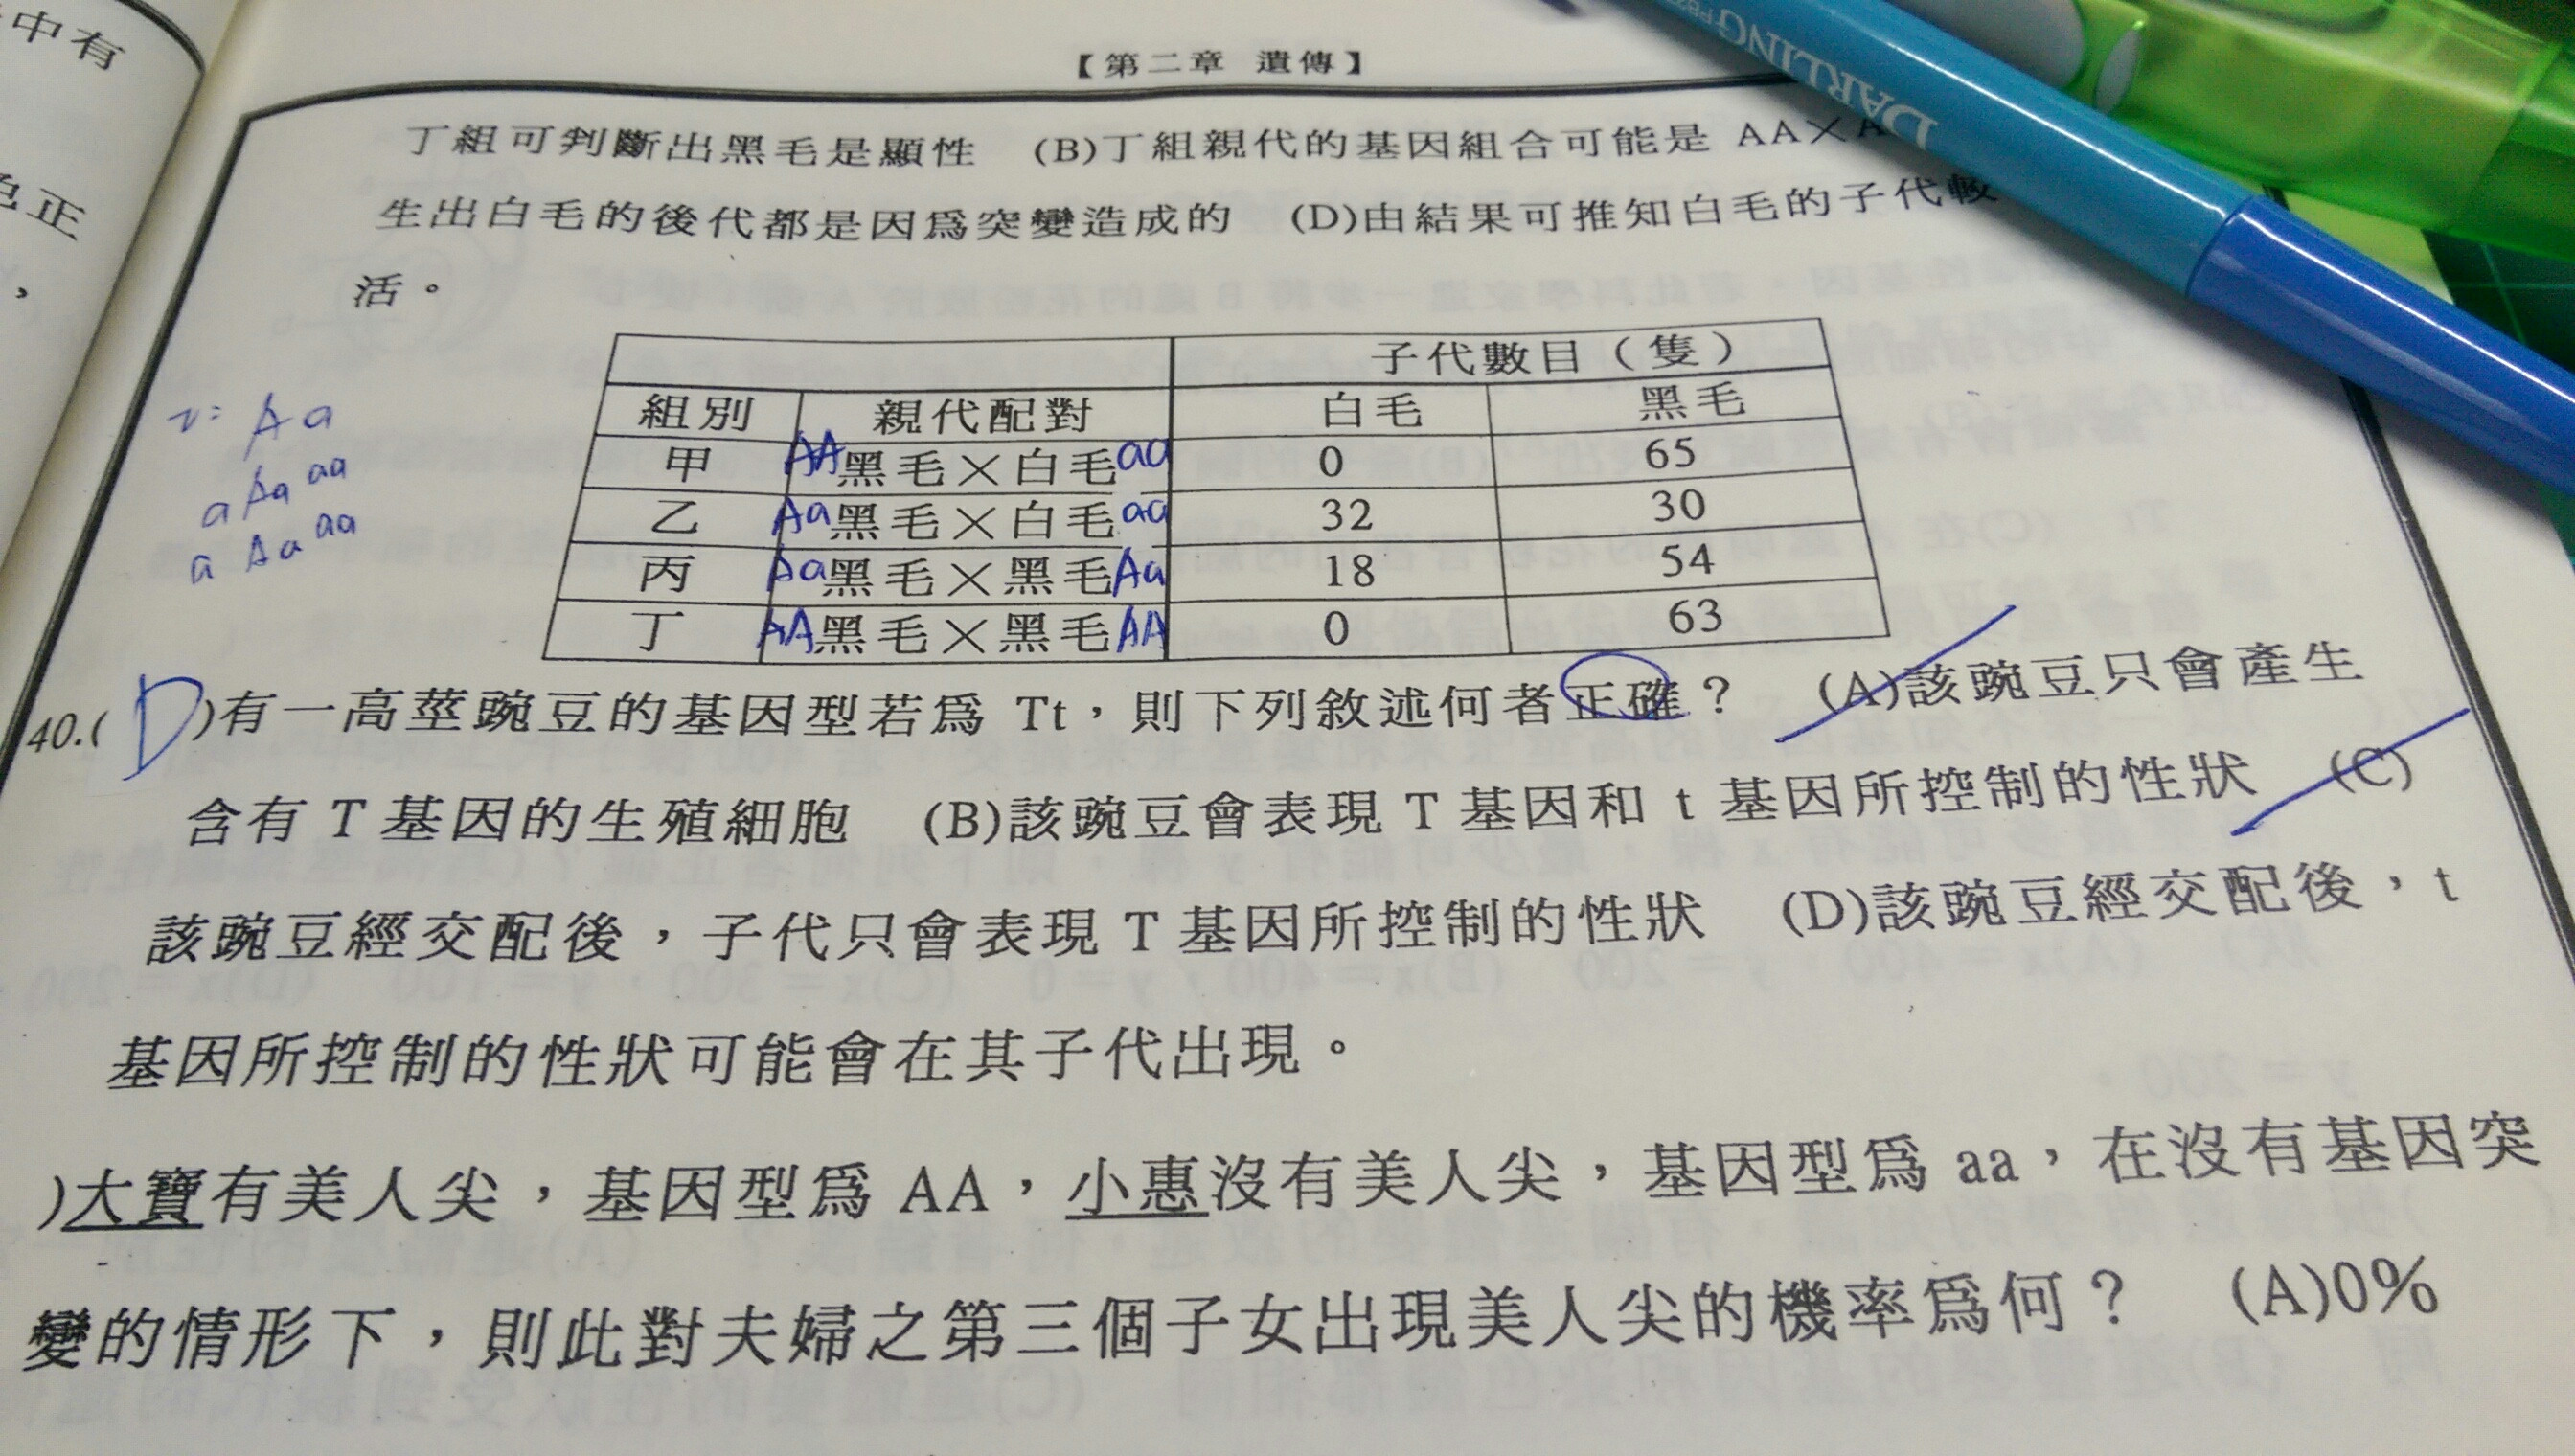 中有
色正
，
【第二章 遺傳】
DARLING
丁組可判斷出黑毛是顯性 (B)丁組親代的基因組合可能是 AA×A
生出白毛的後代都是因爲突變造成的 (D)由結果可推知白毛的子代較
活。
子代數目（隻）
組別 親代配對 白毛 黑毛
甲 AA黑毛×白毛aa 0 65
乙 Aa黑毛×白毛aa 32 30
丙 Aa黑毛×黑毛Aa 18 54
丁 AA黑毛×黑毛AA 0 63
Aa
a Aa aa
a Aa aa
40.( D )有一高莖豌豆的基因型若爲 Tt，則下列敘述何者正確？ (A)該豌豆只會產生
含有 T 基因的生殖細胞 (B)該豌豆會表現 T 基因和 t 基因所控制的性狀 (C)
該豌豆經交配後，子代只會表現 T 基因所控制的性狀 (D)該豌豆經交配後，t
基因所控制的性狀可能會在其子代出現。
)大寶有美人尖，基因型爲 AA，小惠沒有美人尖，基因型爲 aa，在沒有基因突
變的情形下，則此對夫婦之第三個子女出現美人尖的機率爲何？ (A)0%